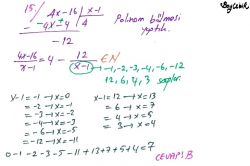 15/ 4x-16 | x-1
-4x±4 | 4
-12
Polinom bölmesi
yaptık.
4x-16/x-1 = 4 - 12/(x-1) → -1,-2,-3,-4,-6,-12
12, 6, 4, 3
x-1=-1→x=0
=-2→x=-1
=-3→x=-2
=-4→x=-3
=-6→x=-5
=-12→x=-11
x-1=12→x=13
=6→x=7
=4→x=5
=3→x=4
0-1-2-3-5-11+13+7+5+4=7
CEVAP B